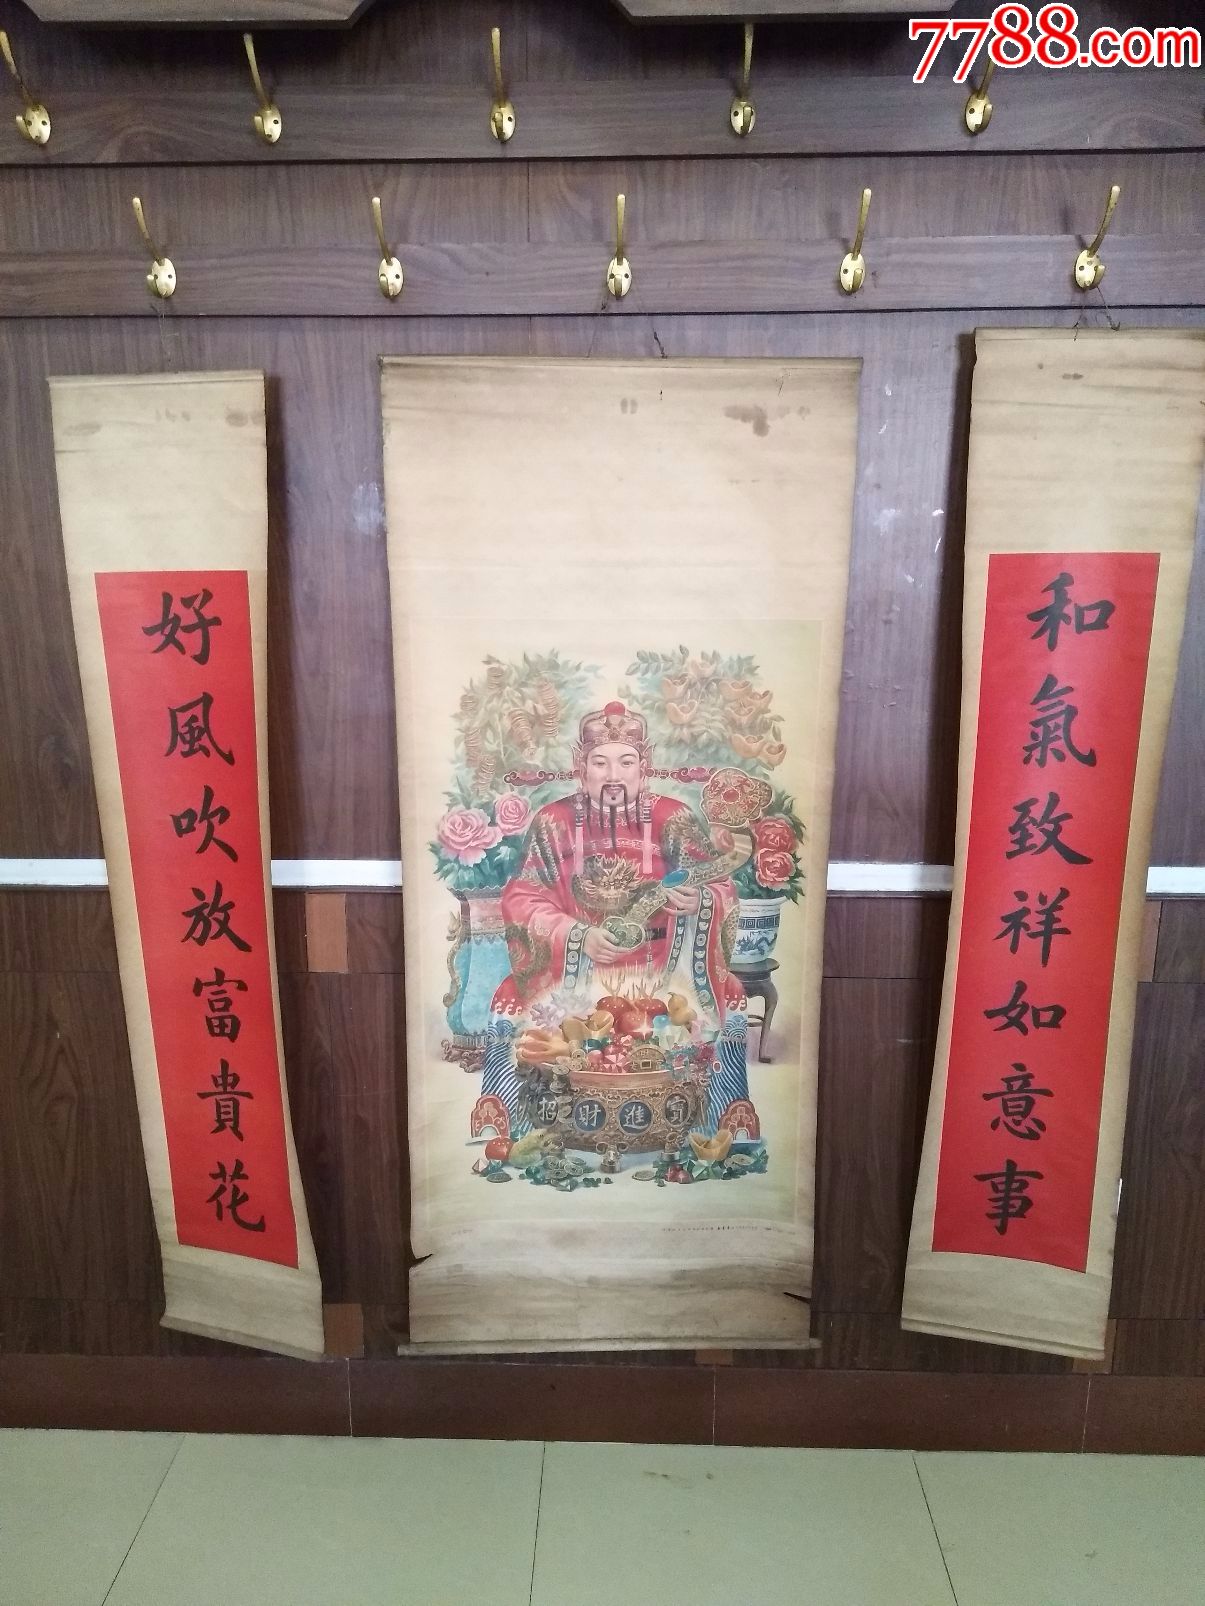 7788.com
和氣致祥如意事
好風吹放富貴花
招財進寶